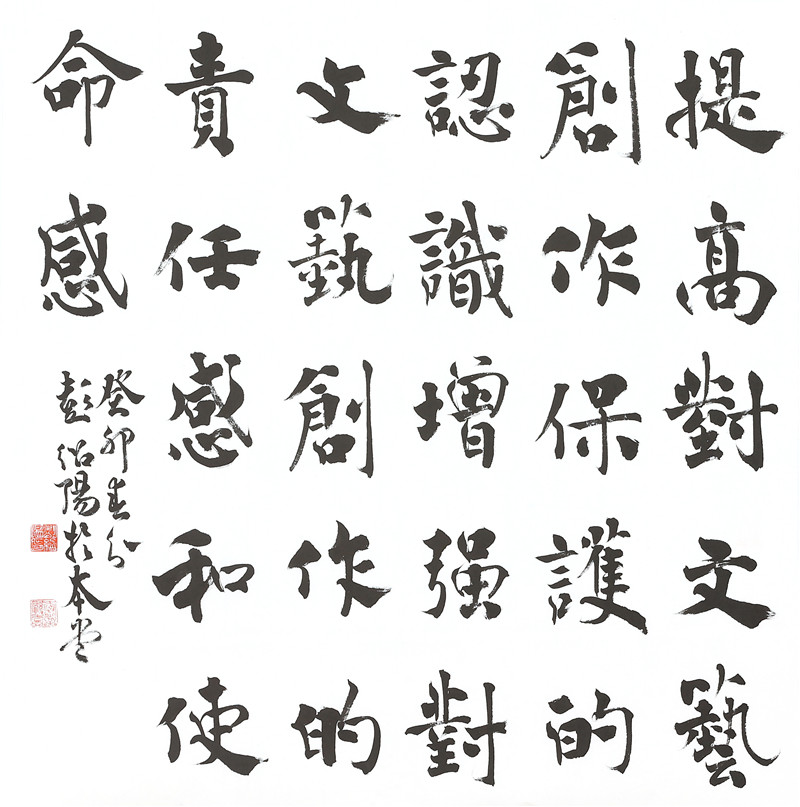 提高對文藝
創作保護的
認識增强對
文藝創作的
責任感和使
命感
癸卯春分
彭佑陽於本堂